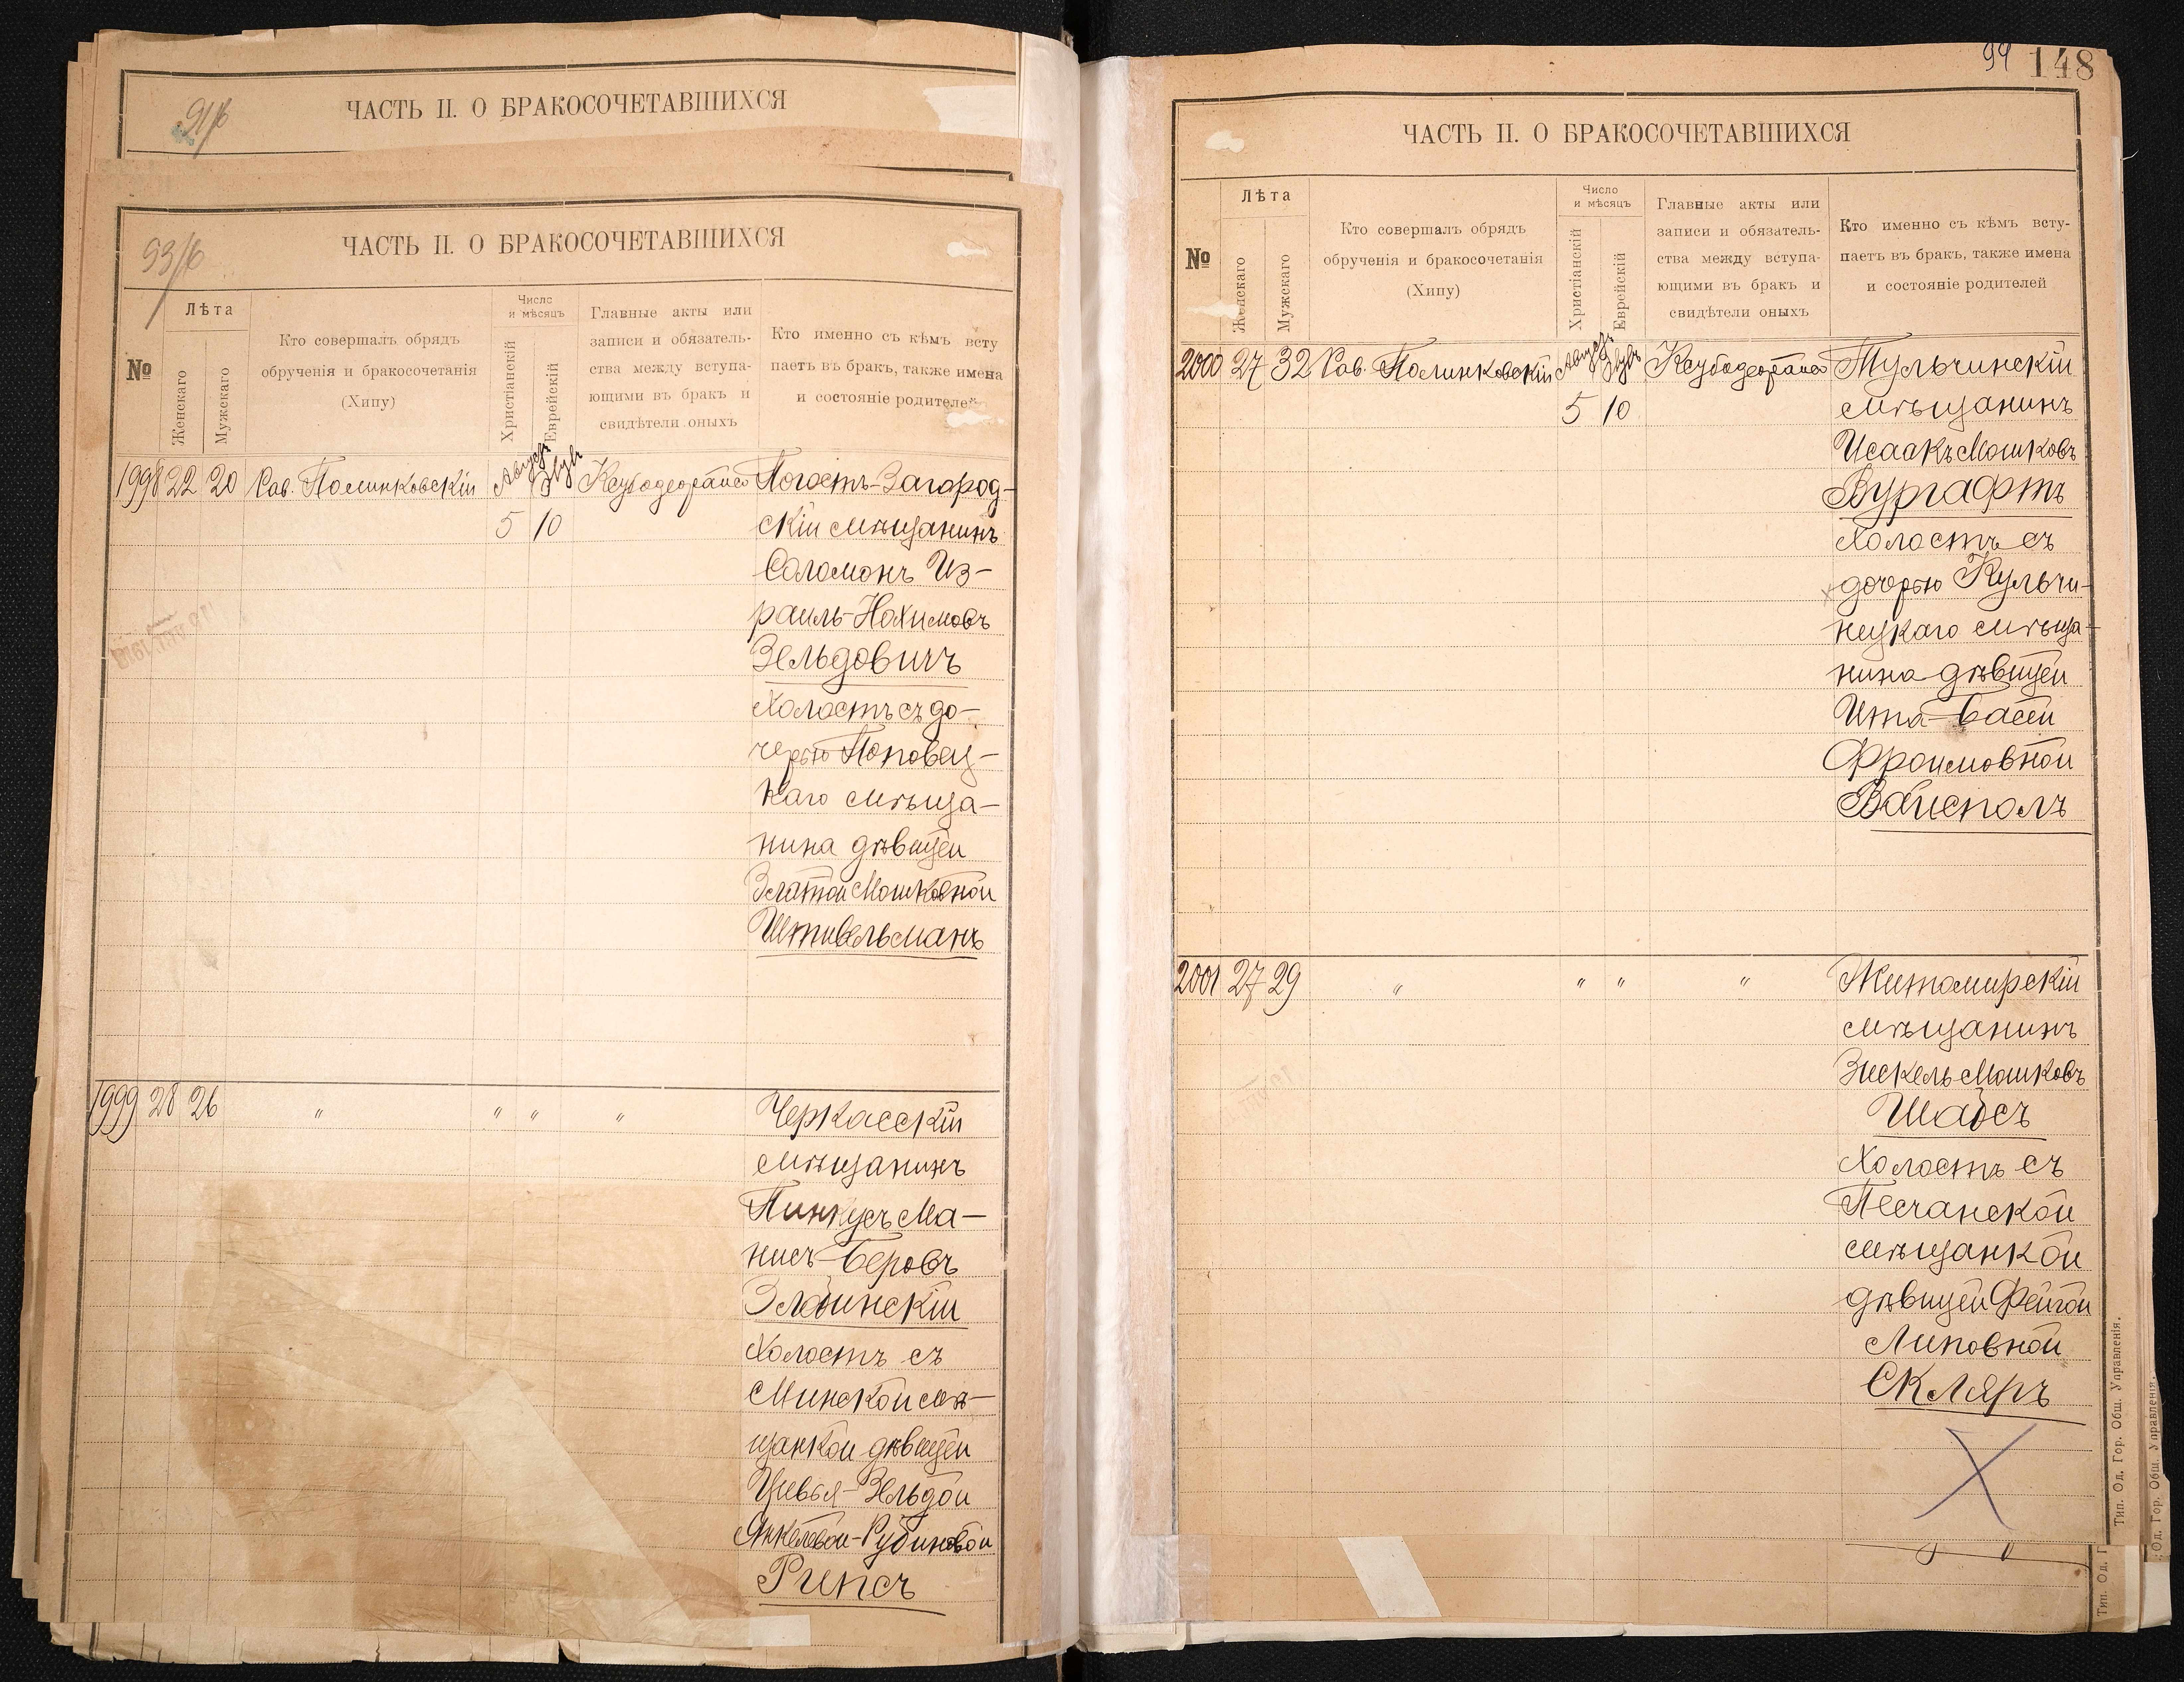 91/б
ЧАСТЬ II. О БРАКОСОЧЕТАВШИХСЯ
93/б
ЧАСТЬ II. О БРАКОСОЧЕТАВШИХСЯ
№
Лѣта
Женскаго
Мужскаго
Кто совершалъ обрядъ
обрученія и бракосочетанія
(Хипу)
Число
и мѣсяцъ
Христіанскій
Еврейскій
Главные акты или
записи и обязатель-
ства между вступа-
ющими въ бракъ и
свидѣтели оныхъ
Кто именно съ кѣмъ всту
паетъ въ бракъ, также имена
и состояніе родителей
1998 22 20 Рав. Полинковскій Августъ Ксубодеорайсо Погостъ-Загород-
5 10 скій мѣщанинъ
Соломонъ Из-
раиль-Нахимовъ
Зельдовичъ
холостъ съ до-
черью Поповец-
каго мѣща-
нина дѣвицей
Златой Мошковной
Штивельманъ
1999 28 26 " " " " Черкасскій
мѣщанинъ
Пинкусъ Ма-
нисъ-Беровъ
Злотинскій
холостъ съ
Минской мѣ-
щанкой дѣвицей
Цивья-Зельдой
Янкелевой-Рубиновой
Рипсъ
94 148
ЧАСТЬ II. О БРАКОСОЧЕТАВШИХСЯ
№
Лѣта
Женскаго
Мужскаго
Кто совершалъ обрядъ
обрученія и бракосочетанія
(Хипу)
Число
и мѣсяцъ
Христіанскій
Еврейскій
Главные акты или
записи и обязатель-
ства между вступа-
ющими въ бракъ и
свидѣтели оныхъ
Кто именно съ кѣмъ всту-
паетъ въ бракъ, также имена
и состояніе родителей
2000 27 32 Рав. Полинковскій Августъ Ксубодеорайсо Тульчинскій
5 10 мѣщанинъ
Исаакъ Мошковъ
Вургафтъ
холостъ съ
дочерью Кульчи-
нецкаго мѣща-
нина дѣвицей
Ита-Басей
Фроимовной
Вайсполъ
2001 27 29 " " " " Житомирскій
мѣщанинъ
Зискель Мошковъ
Шайсъ
холостъ съ
Песчанской
мѣщанкой
дѣвицей Фейгой
Липовной
Скляръ
Тип. Од. Гор. Общ. Управленія.
Од. Гор. Общ. Управленія.
Тип. Од. Г